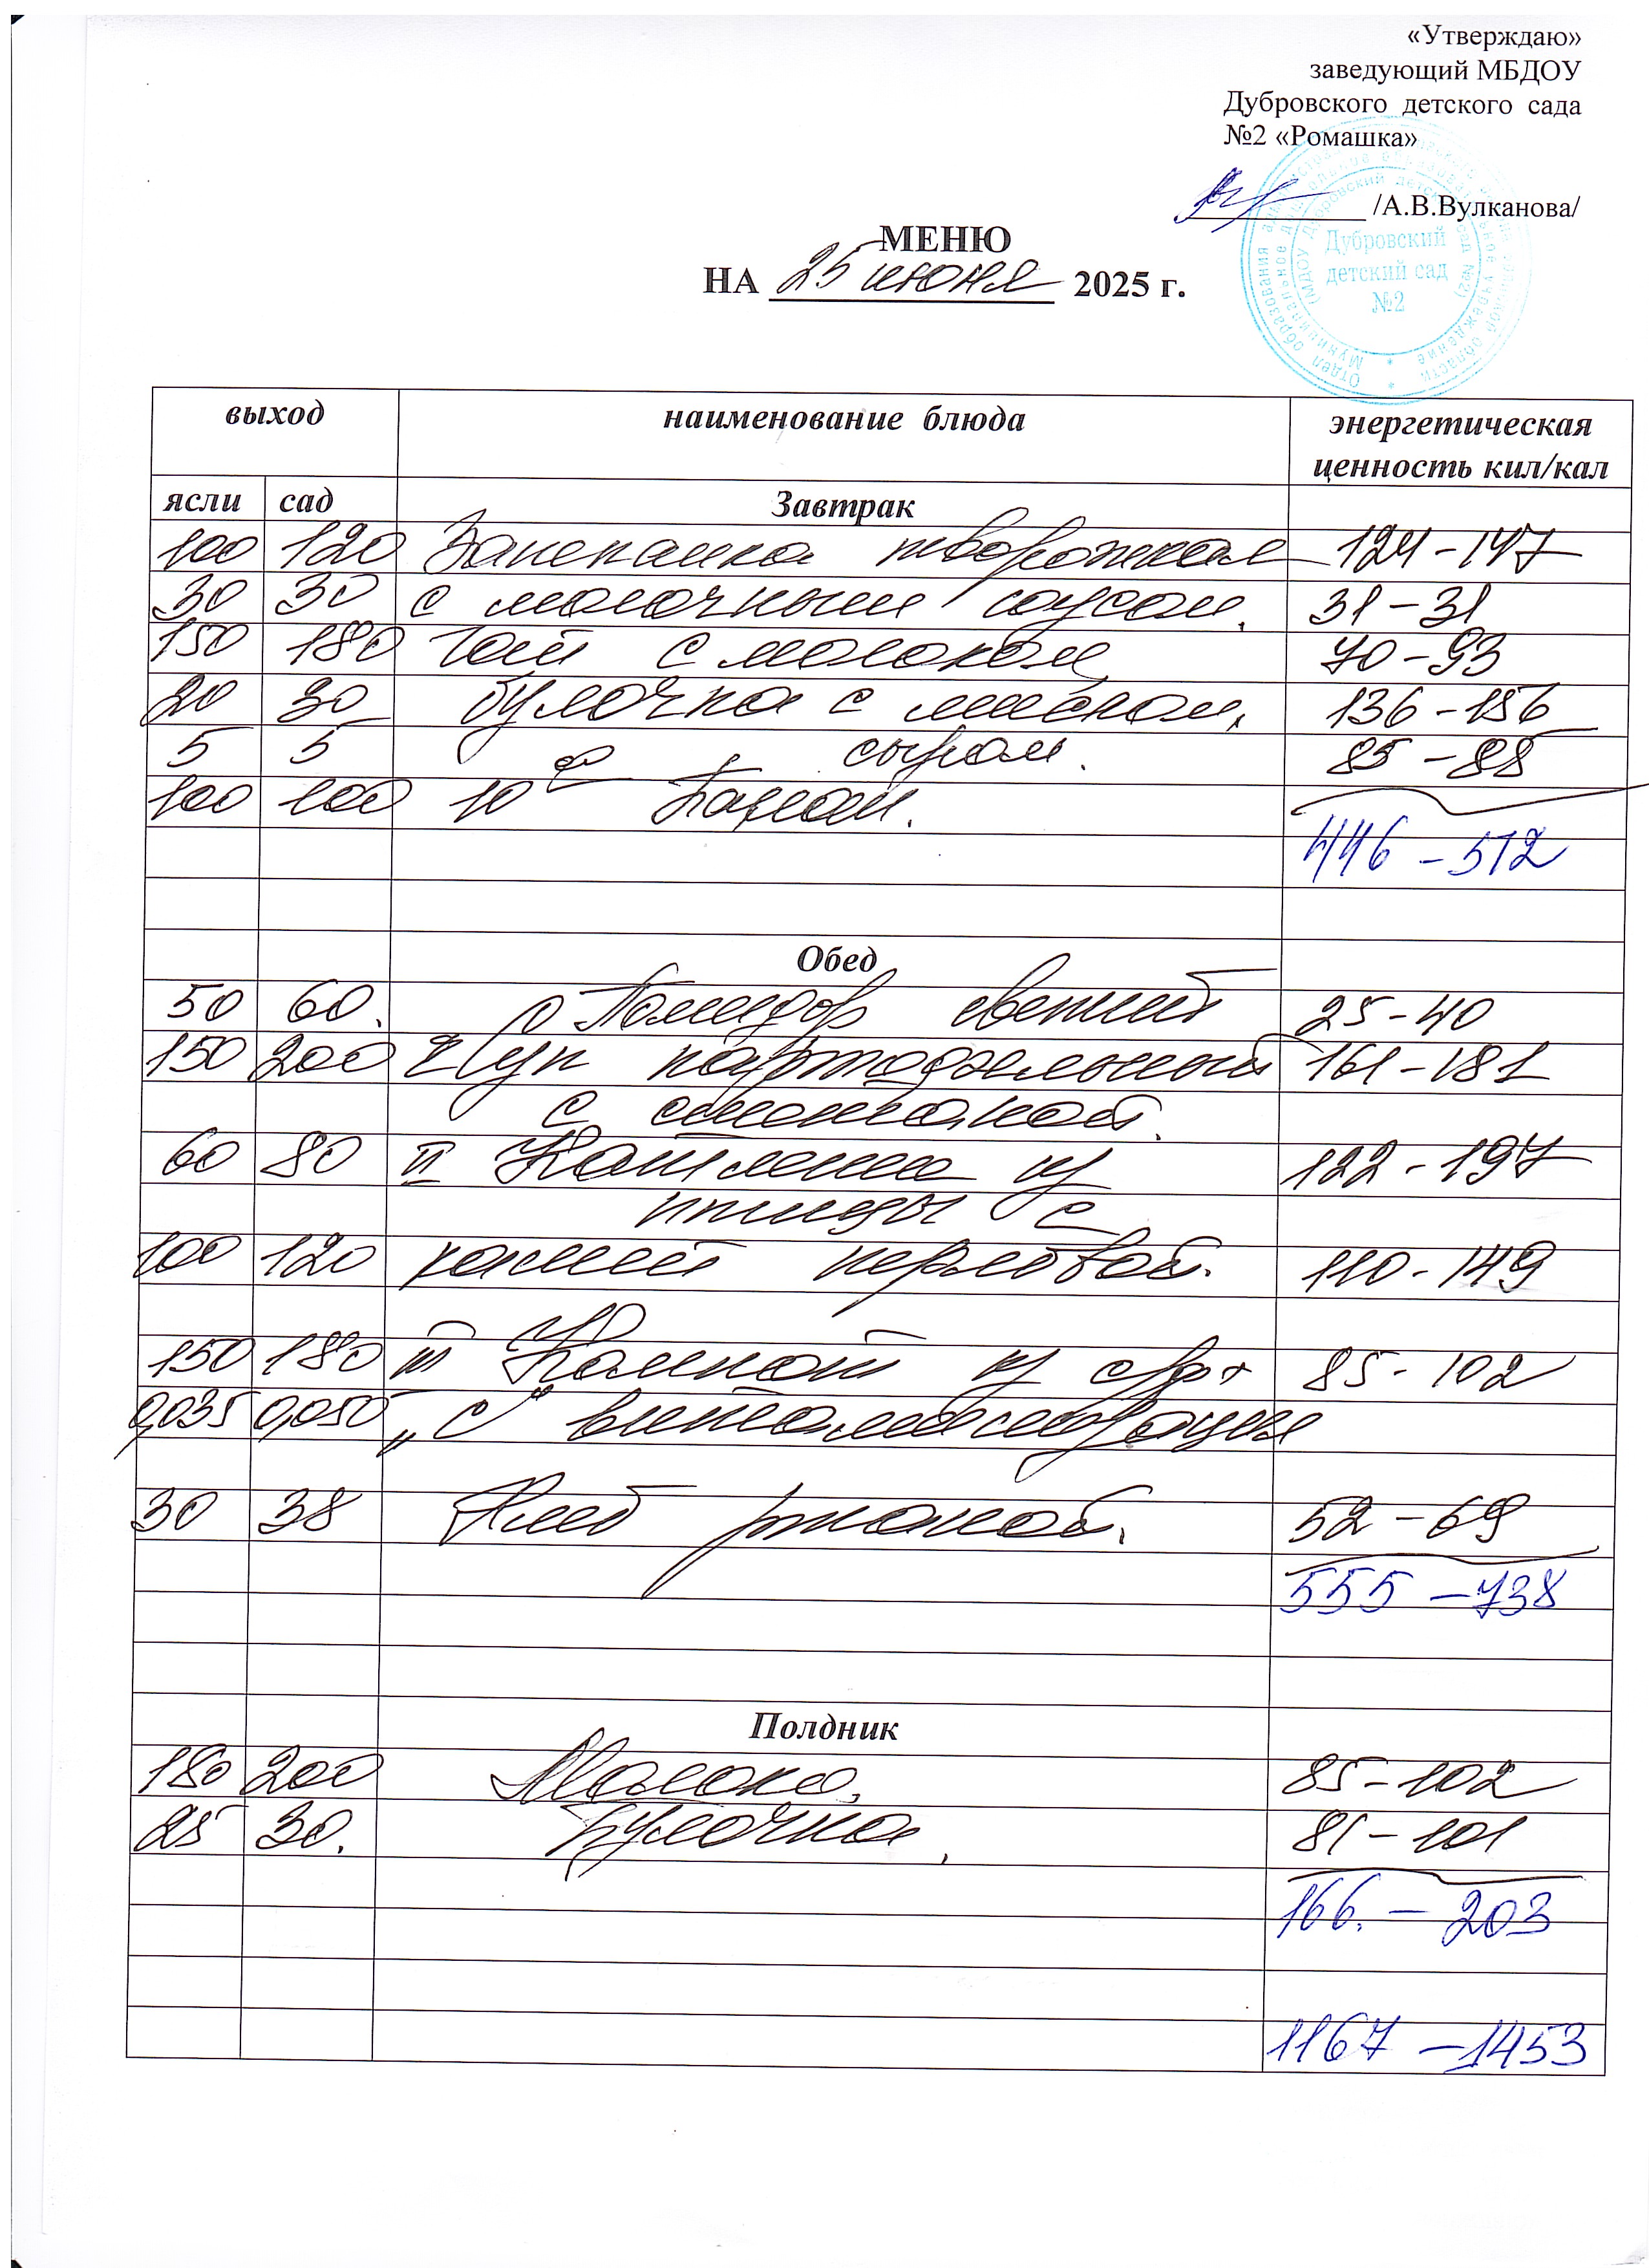 «Утверждаю»
заведующий МБДОУ
Дубровского детского сада
№2 «Ромашка»
/А.В.Вулканова/
Дубровский
детский сад
№2
МЕНЮ
НА 25 июня 2025 г.
выход наименование блюда энергетическая
ценность кил/кал
ясли сад Завтрак
100 120 Запеканка творожная 124-147
30 30 с молочным соусом, 31-31
150 180 Чай с молоком 70-93
20 30 булочка с маслом, 136-156
5 5 сыром. 85-85
100 100 10 Банан.
446-512
Обед
50 60. Помидор свежий 25-40
150 200 I Суп картофельный 161-181
с сметаной.
60 80 II Котлета из 122-197
птицы с
100 120 кашей перловой. 110-149
150 180 III Компот из с/ф+ 85-102
0,035 0,050 „С" витаминизация
30 38 Хлеб ржаной. 52-69
555-738
Полдник
180 200 Молоко, 85-102
25 30. Булочка, 81-101
166.-203
1167-1453